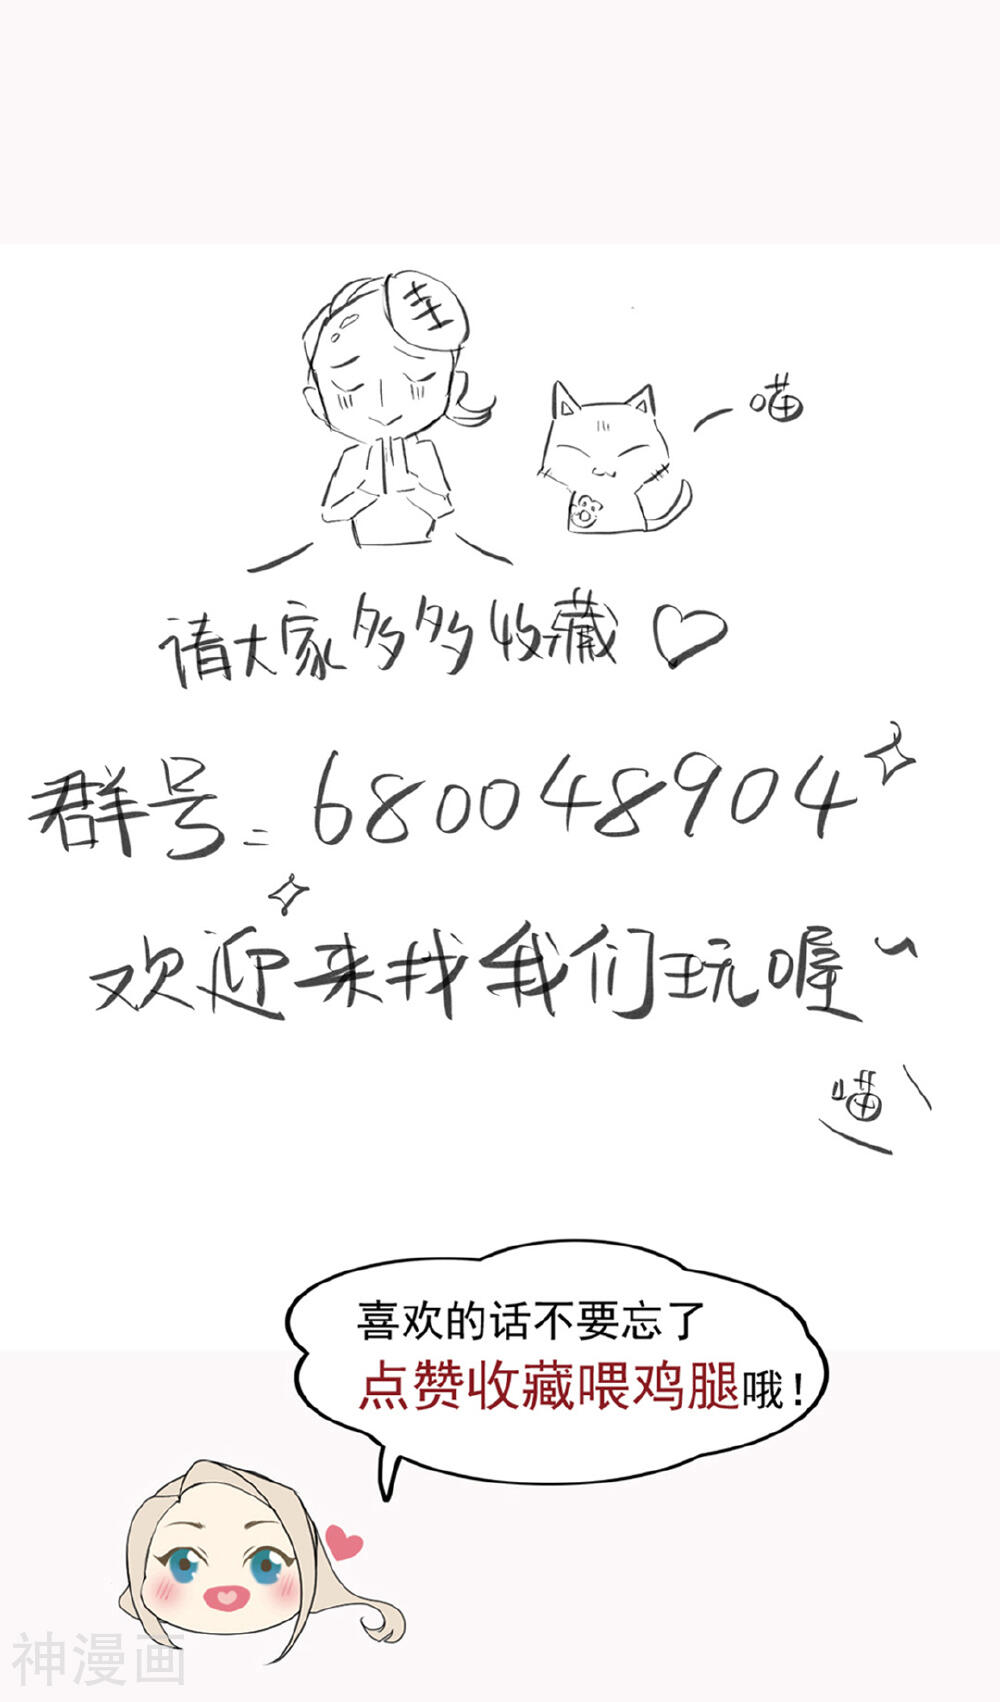 圭
喵
请大家多多收藏♡
群号=680048904
欢迎来找我们玩喔~
喵
喜欢的话不要忘了
点赞收藏喂鸡腿哦!
神漫画